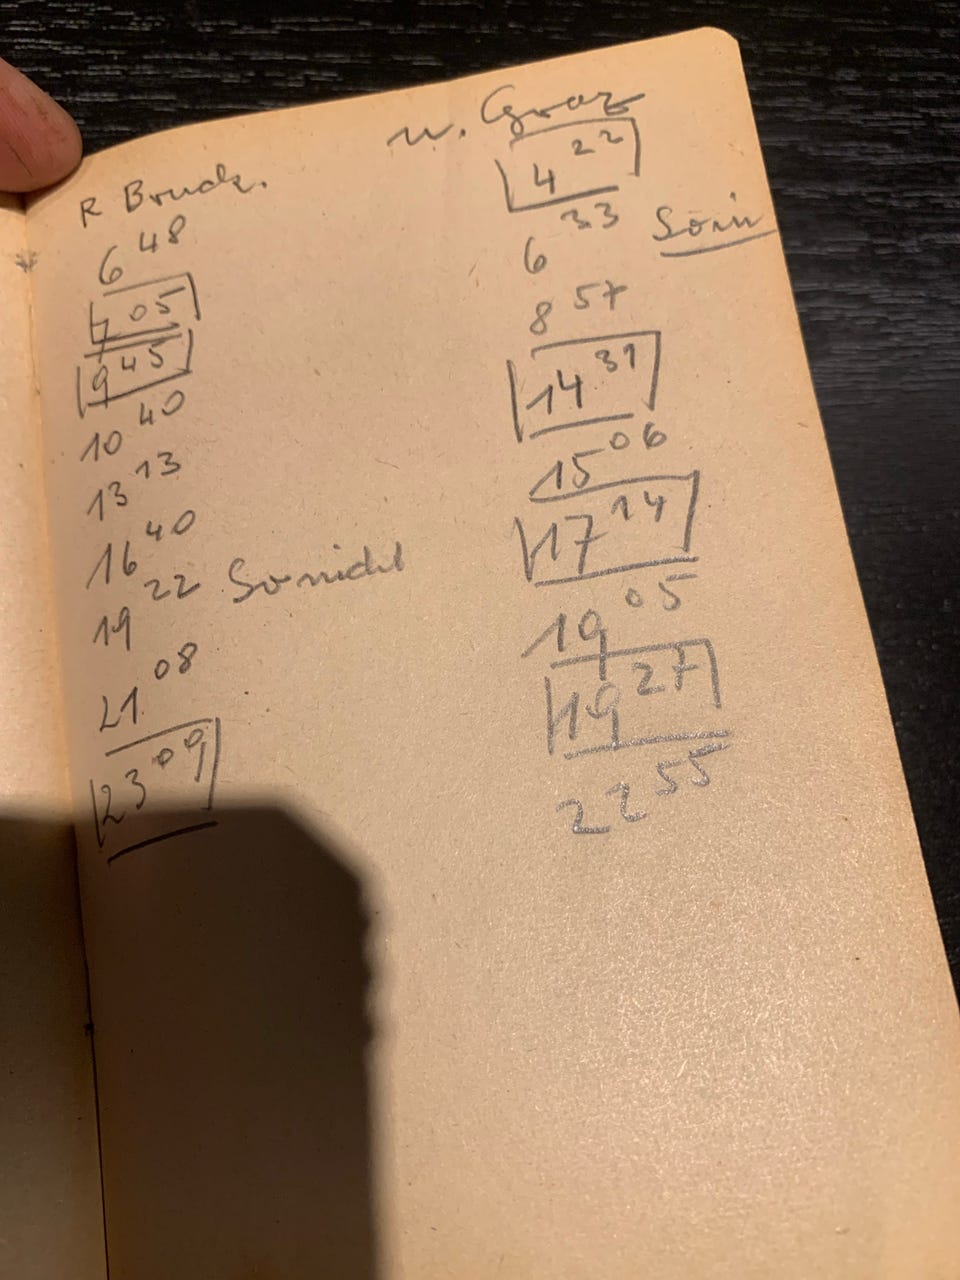 R Bruck.
6 48
7 05
9 45
10 40
13 13
16 40
19 22 So nicht
21 08
23 09
n. Graz
4 22
6 33
8 57
14 31
15 06
17 14
19 05
19 27
22 55